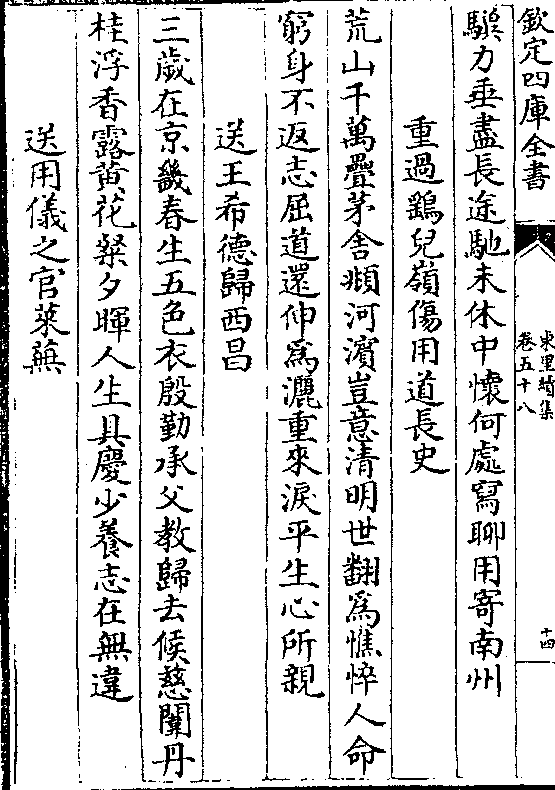 欽定四庫全書
東里續集
卷五十八
十四
驥力垂盡長途馳未休中懷何處寫聊用寄南州
重過鷂兒嶺傷用道長史
荒山千萬疊茅舍頫河濱豈意清明世翻爲憔悴人命
窮身不返志屈道還伸爲灑重來淚平生心所親
送王希德歸西昌
三歲在京畿春生五色衣殷勤承父教歸去候慈闈丹
桂浮香露黄花粲夕暉人生具慶少養志在無違
送用儀之官萊蕪